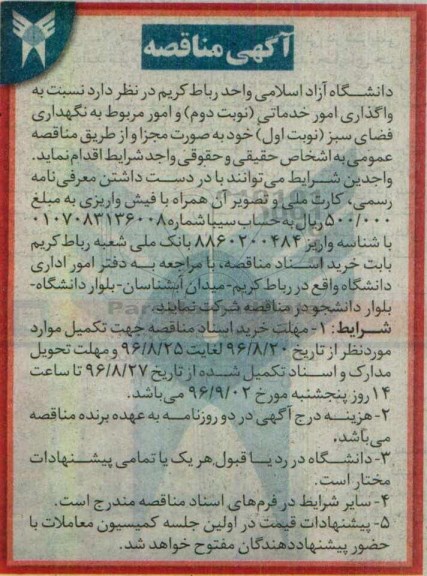 آگهی مناقصه
دانشگاه آزاد اسلامی واحد رباط کریم در نظر دارد نسبت به
واگذاری امور خدماتی (نوبت دوم) و امور مربوط به نگهداری
فضای سبز (نوبت اول) خود به صورت مجزا و از طریق مناقصه
عمومی به اشخاص حقیقی و حقوقی واجد شرایط اقدام نماید.
واجدین شرایط می‌توانند با در دست داشتن معرفی‌نامه
رسمی، کارت ملی و تصویر آن همراه با فیش واریزی به مبلغ
۵۰۰/۰۰۰ ریال به حساب سیبا شماره ۰۱۰۷۰۸۳۱۳۶۰۰۸
با شناسه واریز ۸۸۶۰۲۰۰۴۸۴ بانک ملی شعبه رباط کریم
بابت خرید اسناد مناقصه، با مراجعه به دفتر امور اداری
دانشگاه واقع در رباط کریم-میدان آبشناسان-بلوار دانشگاه-
بلوار دانشجو در مناقصه شرکت نمایند.
شرایط: ۱- مهلت خرید اسناد مناقصه جهت تکمیل موارد
موردنظر از تاریخ ۹۶/۸/۲۰ لغایت ۹۶/۸/۲۵ و مهلت تحویل
مدارک و اسناد تکمیل شده از تاریخ ۹۶/۸/۲۷ تا ساعت
۱۴ روز پنجشنبه مورخ ۹۶/۹/۰۲ می‌باشد.
۲-هزینه درج آگهی در دو روزنامه به عهده برنده مناقصه
می‌باشد.
۳-دانشگاه در رد یا قبول هر یک یا تمامی پیشنهادات
مختار است.
۴-سایر شرایط در فرم‌های اسناد مناقصه مندرج است.
۵-پیشنهادات قیمت در اولین جلسه کمیسیون معاملات با
حضور پیشنهاددهندگان مفتوح خواهد شد.